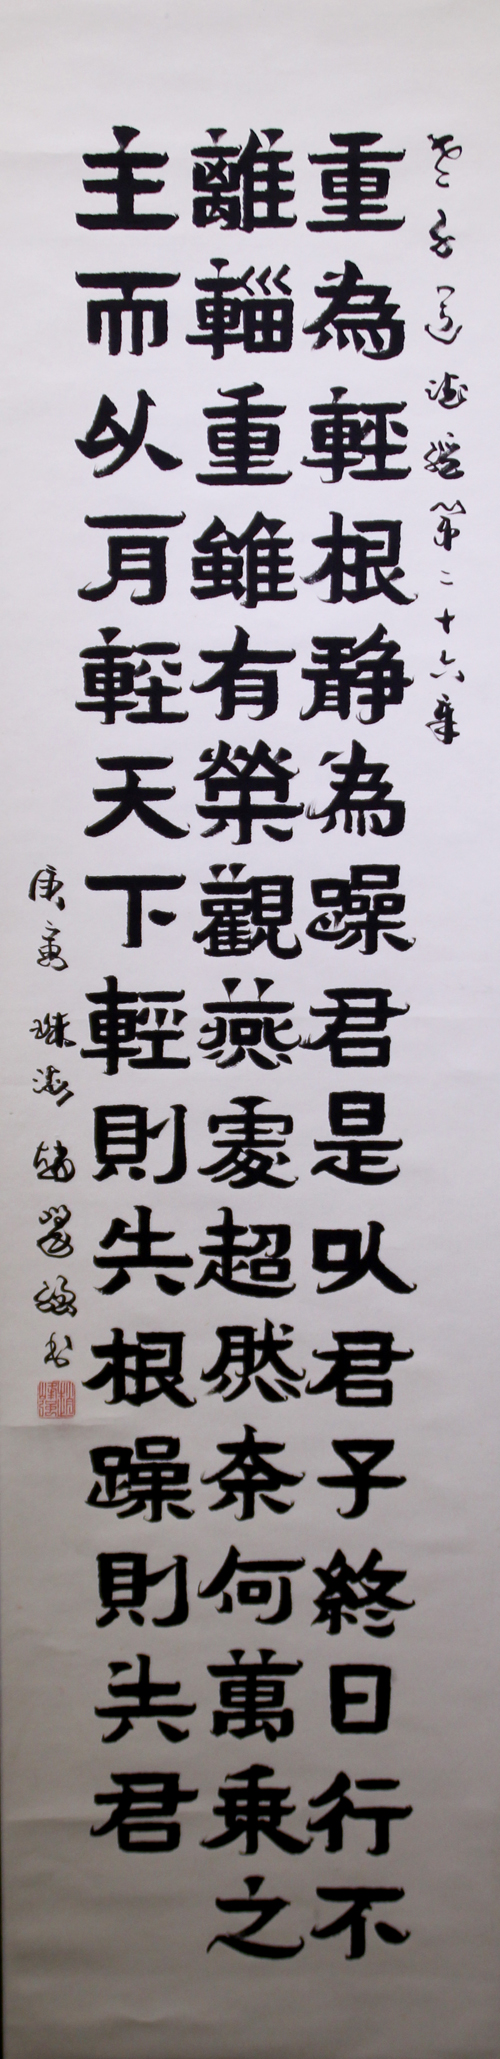 老子道德經第二十六章
重為輕根静為躁君是以君子終日行不
離輜重雖有榮觀燕處超然奈何萬乘之
主而以身輕天下輕則失根躁則失君
庚寅珠海書